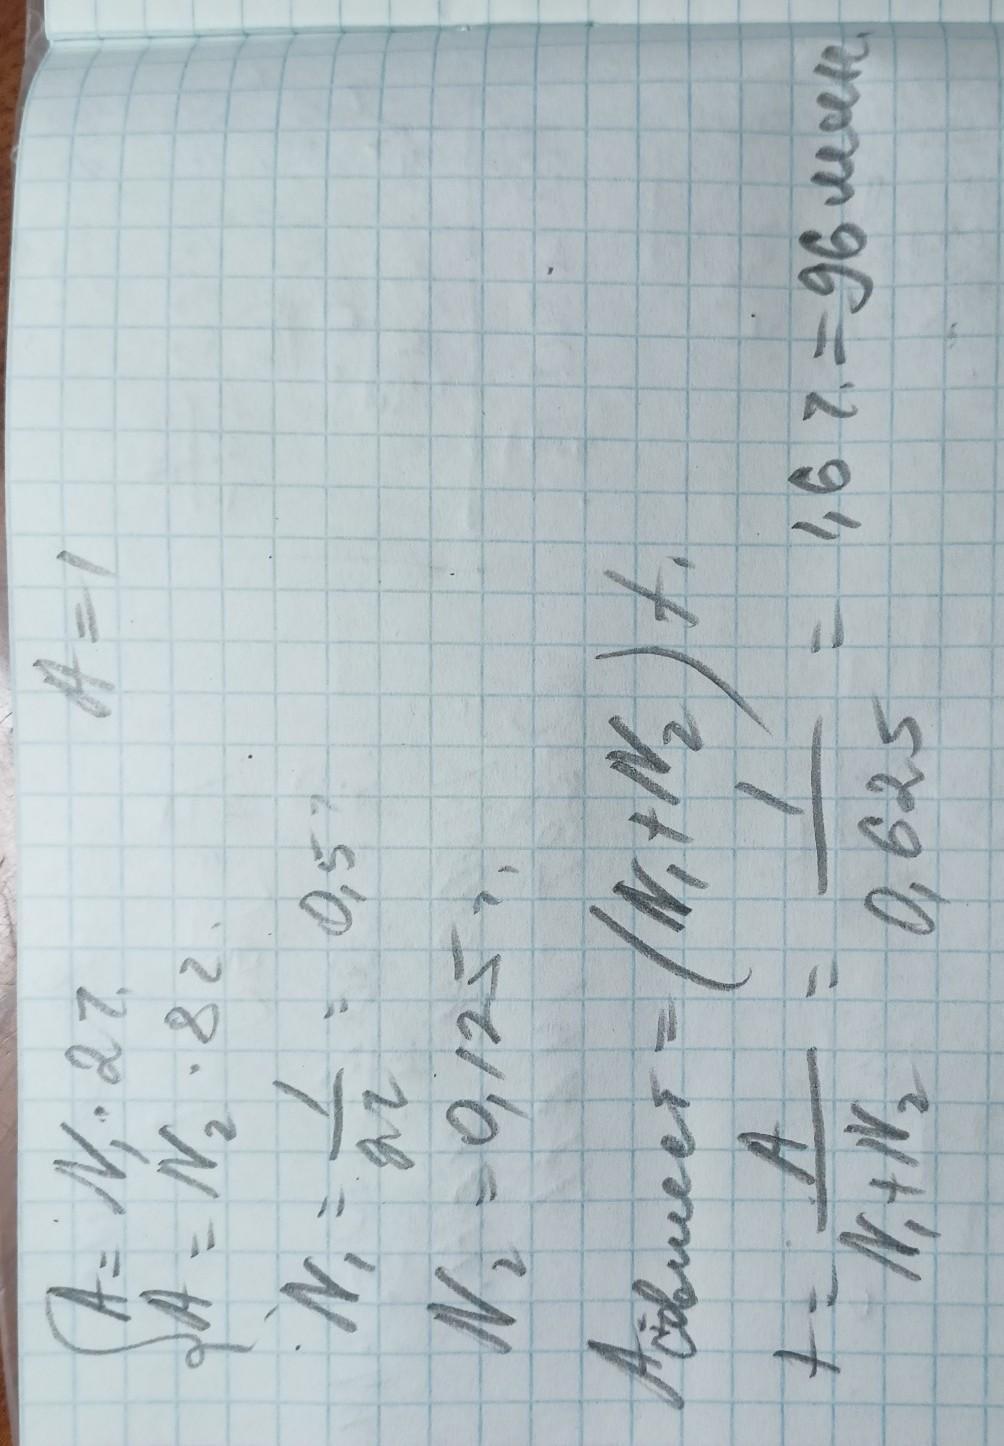 A = N₁ · 2ч. A = 1
A = N₂ · 8ч.
N₁ = 1/2ч = 0,5
N₂ = 0,125 ч.
Aсовмест = (N₁+N₂) t.
t = A/(N₁+N₂) = 1/0,625 = 1,6 ч. = 96 мин.